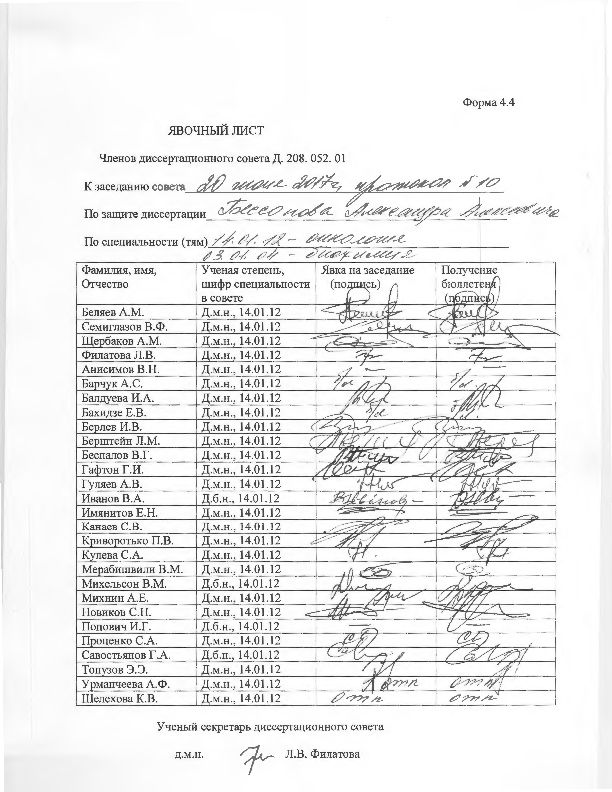 Форма 4.4
ЯВОЧНЫЙ ЛИСТ
Членов диссертационного совета Д. 208. 052. 01
К заседанию совета 20 июня 2017 г, протокол №10
По защите диссертации Бессонова Александра Алексеевича
По специальности (тям) 14.01.12 – онкология
03.01.04 – биохимия
Фамилия, имя, Отчество Ученая степень, шифр специальности в совете Явка на заседание (подпись) Получение бюллетеня (подпись)
Беляев А.М. Д.м.н., 14.01.12
Семиглазов В.Ф. Д.м.н., 14.01.12
Щербаков А.М. Д.м.н., 14.01.12
Филатова Л.В. Д.м.н., 14.01.12
Анисимов В.Н. Д.м.н., 14.01.12 — —
Барчук А.С. Д.м.н., 14.01.12
Балдуева И.А. Д.м.н., 14.01.12
Бахидзе Е.В. Д.м.н., 14.01.12
Берлев И.В. Д.м.н., 14.01.12
Берштейн Л.М. Д.м.н., 14.01.12
Беспалов В.Г. Д.м.н., 14.01.12
Гафтон Г.И. Д.м.н., 14.01.12
Гуляев А.В. Д.м.н., 14.01.12
Иванов В.А. Д.б.н., 14.01.12
Имянитов Е.Н. Д.м.н., 14.01.12
Канаев С.В. Д.м.н., 14.01.12
Криворотько П.В. Д.м.н., 14.01.12
Кулева С.А. Д.м.н., 14.01.12
Мерабишвили В.М. Д.м.н., 14.01.12
Михельсон В.М. Д.б.н., 14.01.12
Михнин А.Е. Д.м.н., 14.01.12
Новиков С.Н. Д.м.н., 14.01.12
Попович И.Г. Д.б.н., 14.01.12 — —
Проценко С.А. Д.м.н., 14.01.12
Савостьянов Г.А. Д.б.н., 14.01.12
Топузов Э.Э. Д.м.н., 14.01.12
Урманчеева А.Ф. Д.м.н., 14.01.12 отп отп
Шелехова К.В. Д.м.н., 14.01.12 отп отп
Ученый секретарь диссертационного совета
д.м.н. Л.В. Филатова